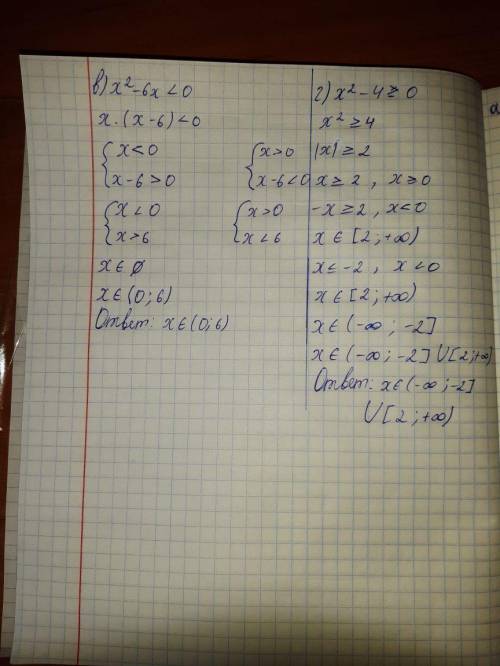 в) x² - 6x < 0
x · (x - 6) < 0
{ x < 0
{ x - 6 > 0
{ x > 0
{ x - 6 < 0
{ x < 0
{ x > 6
{ x > 0
{ x < 6
x ∈ ∅
x ∈ (0; 6)
Ответ: x ∈ (0; 6)
г) x² - 4 ≥ 0
x² ≥ 4
|x| ≥ 2
x ≥ 2 , x ≥ 0
-x ≥ 2 , x < 0
x ∈ [2; +∞)
x ≤ -2 , x < 0
x ∈ [2; +∞)
x ∈ (-∞; -2]
x ∈ (-∞; -2] ∪ [2; +∞)
Ответ: x ∈ (-∞; -2]
∪ [2; +∞)